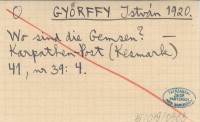 O GYÖRFFY István 1920.
Wo sind die Gemsen? —
Karpathen-Post (Kesmark)
41, nr 39: 4.